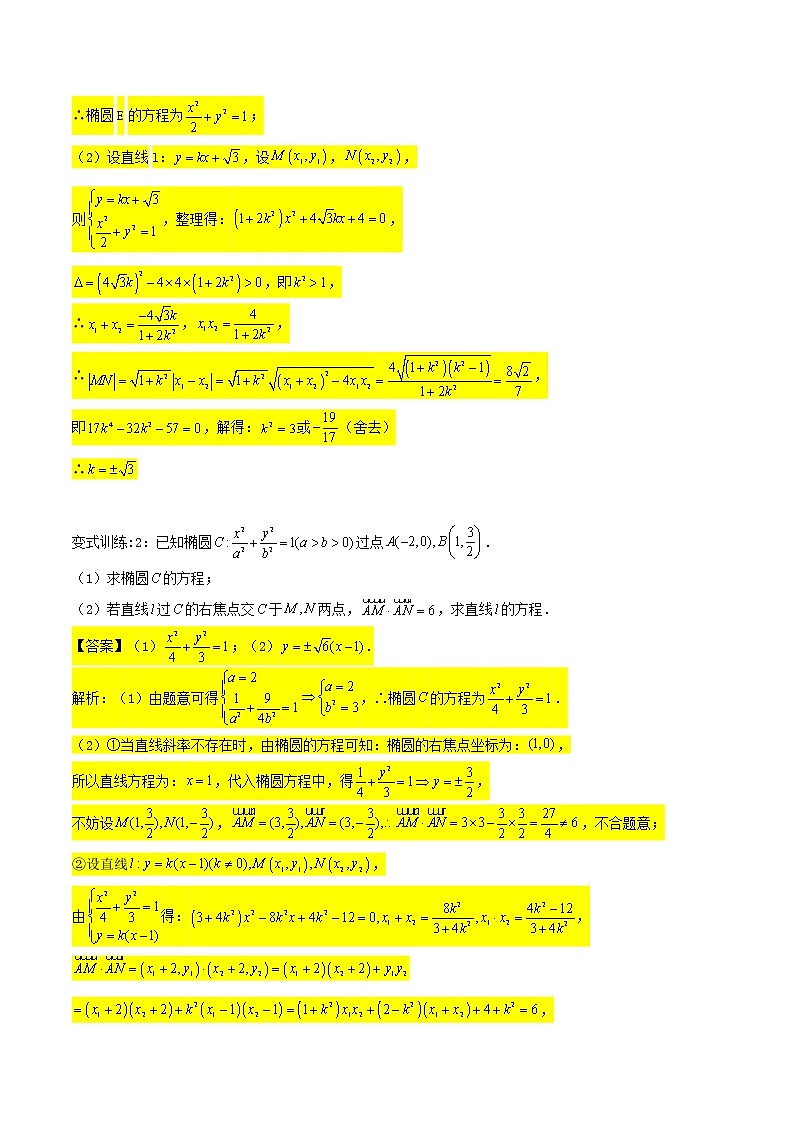 ∴椭圆 E 的方程为 x²/2 + y² = 1；
（2）设直线 l：y = kx + √3，设 M(x₁, y₁)，N(x₂, y₂)，
则 { y = kx + √3, x²/2 + y² = 1，整理得：(1+2k²)x² + 4√3kx + 4 = 0，
Δ = (4√3k)² − 4×4×(1+2k²) > 0，即 k² > 1，
∴ x₁ + x₂ = −4√3k/(1+2k²)，x₁x₂ = 4/(1+2k²)，
∴ |MN| = √(1+k²)|x₁ − x₂| = √(1+k²)√((x₁+x₂)² − 4x₁x₂) = 4√((1+k²)(k²−1))/(1+2k²) = 8√2/7，
即 17k⁴ − 32k² − 57 = 0，解得：k² = 3 或 −19/17（舍去）
∴ k = ±√3
变式训练:2：已知椭圆 C: x²/a² + y²/b² = 1(a > b > 0) 过点 A(−2,0), B(1, 3/2)．
（1）求椭圆 C 的方程；
（2）若直线 l 过 C 的右焦点交 C 于 M, N 两点，AM · AN = 6，求直线 l 的方程．
【答案】（1）x²/4 + y²/3 = 1；（2）y = ±√6(x−1)．
解析：（1）由题意可得 { a = 2, 1/a² + 9/4b² = 1 ⇒ { a = 2, b² = 3，∴椭圆 C 的方程为 x²/4 + y²/3 = 1．
（2）①当直线斜率不存在时，由椭圆的方程可知：椭圆的右焦点坐标为：(1,0)，
所以直线方程为：x = 1，代入椭圆方程中，得 1/4 + y²/3 = 1 ⇒ y = ±3/2，
不妨设 M(1, 3/2), N(1, −3/2)，AM = (3, 3/2), AN = (3, −3/2), ∴ AM · AN = 3×3 − 3/2 × 3/2 = 27/4 ≠ 6，不合题意；
②设直线 l : y = k(x−1)(k ≠ 0), M(x₁, y₁), N(x₂, y₂)，
由 { x²/4 + y²/3 = 1, y = k(x−1) 得：(3+4k²)x² − 8k²x + 4k² − 12 = 0, x₁ + x₂ = 8k²/(3+4k²), x₁ · x₂ = (4k²−12)/(3+4k²)，
AM · AN = (x₁+2, y₁) · (x₂+2, y₂) = (x₁+2)(x₂+2) + y₁y₂
= (x₁+2)(x₂+2) + k²(x₁−1)(x₂−1) = (1+k²)x₁x₂ + (2−k²)(x₁+x₂) + 4 + k² = 6，